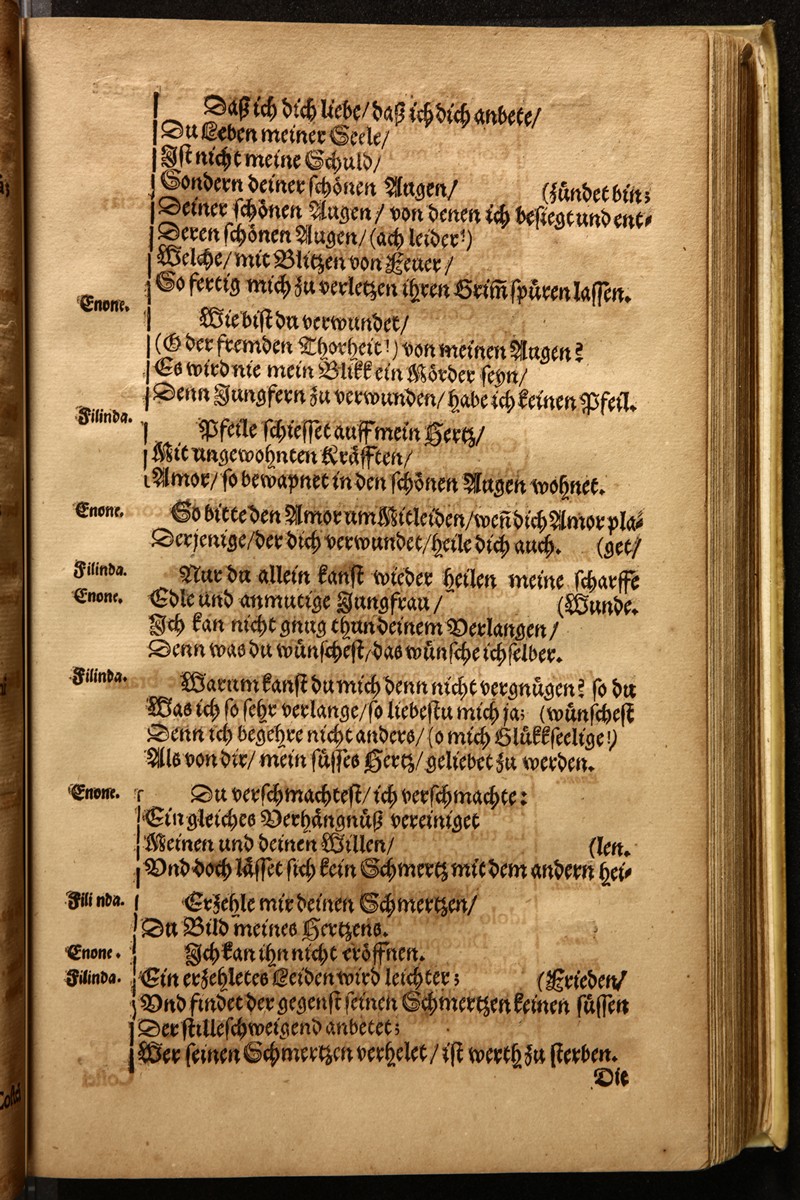 Daß ich dich liebe/ daß ich dich anbete/
Du Leben meiner Seele/
Ist nicht meine Schuld/
Sondern deiner schönen Augen/ (zündet bin;
Deiner schönen Augen/ von denen ich besiegt und ent⸗
Deren schönen Augen/ (ach leider!)
Welche/ mit Blitzen von Feuer/
So fertig mich zu verletzen ihren Grim̃ spüren lassen.
Enone. Wie bist du verwundet/
(O der fremden Thorheit!) von meinen Augen?
Es wird nie mein Blikk ein Mörder seyn/
Denn Jungfern zu verwunden/ habe ich keinen Pfeil.
Filinda. Pfeile schiesset auff mein Hertz/
Mit ungewohnten Kräfften/
Amor/ so bewapnet in den schönen Augen wohnet.
Enone. So bitte den Amor um Mitleiden/ weñ dich Amor pla⸗
Derjenige/ der dich verwundet/ heile dich auch. (get/
Filinda. Nur du allein kanst wieder heilen meine scharffe
Enone. Edle und anmutige Jungfrau/ (Wunde.
Ich kan nicht gnug thun deinem Verlangen/
Denn was du wünschest/ das wünsche ich selber.
Filinda. Warum kanst du mich denn nicht vergnügen? so du
Was ich so sehr verlange/ so liebestu mich ja; (wünschest
Denn ich begehre nicht anders/ (o mich Glükkseelige!)
Als von dir/ mein süsses Hertz/ geliebet zu werden.
Enone. Du verschmachtest/ ich verschmachte:
Ein gleiches Verhängnüß vereiniget
Meinen und deinen Willen/ (len.
Vnd doch lässet sich kein Schmertz mit dem andern hei⸗
Filinda. Erzehle mir deinen Schmertzen/
Du Bild meines Hertzens.
Enone. Ich kan ihn nicht eröffnen.
Filinda. Ein erzehletes Leiden wird leichter; (Frieden/
Vnd findet der gegenst seinen Schmertzen keinen süssen
Der stilleschweigend anbetet;
Wer seinen Schmertzen verhelet/ ist werth zu sterben.
Die